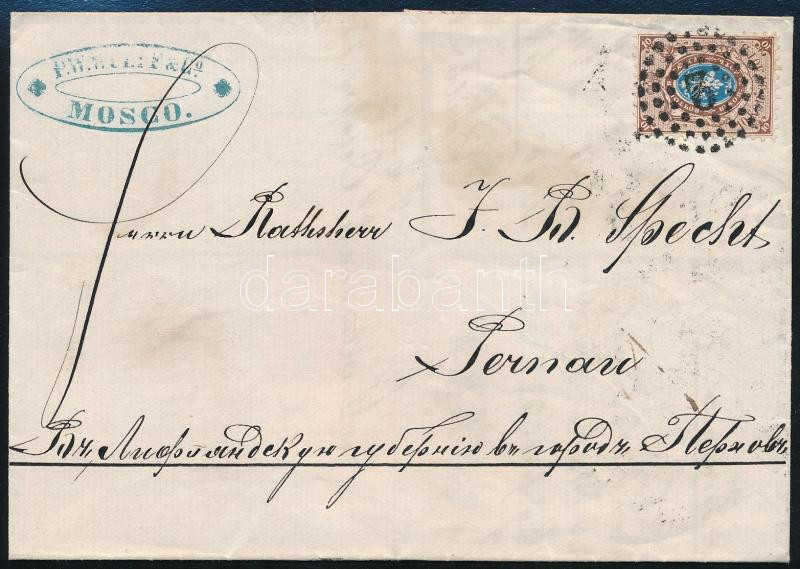 P. W. WULFF & Co.
MOSCO.
10 10
Herrn Rathsherr J. R. Specht
Pernau
Въ Лифляндскую губернію въ городъ Перновъ
darabanth